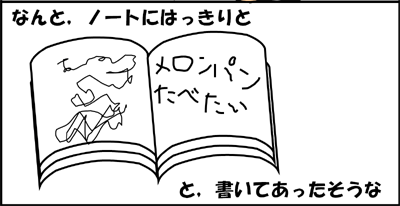 なんと，ノートにはっきりと
メロンパン
たべたい
と，書いてあったそうな